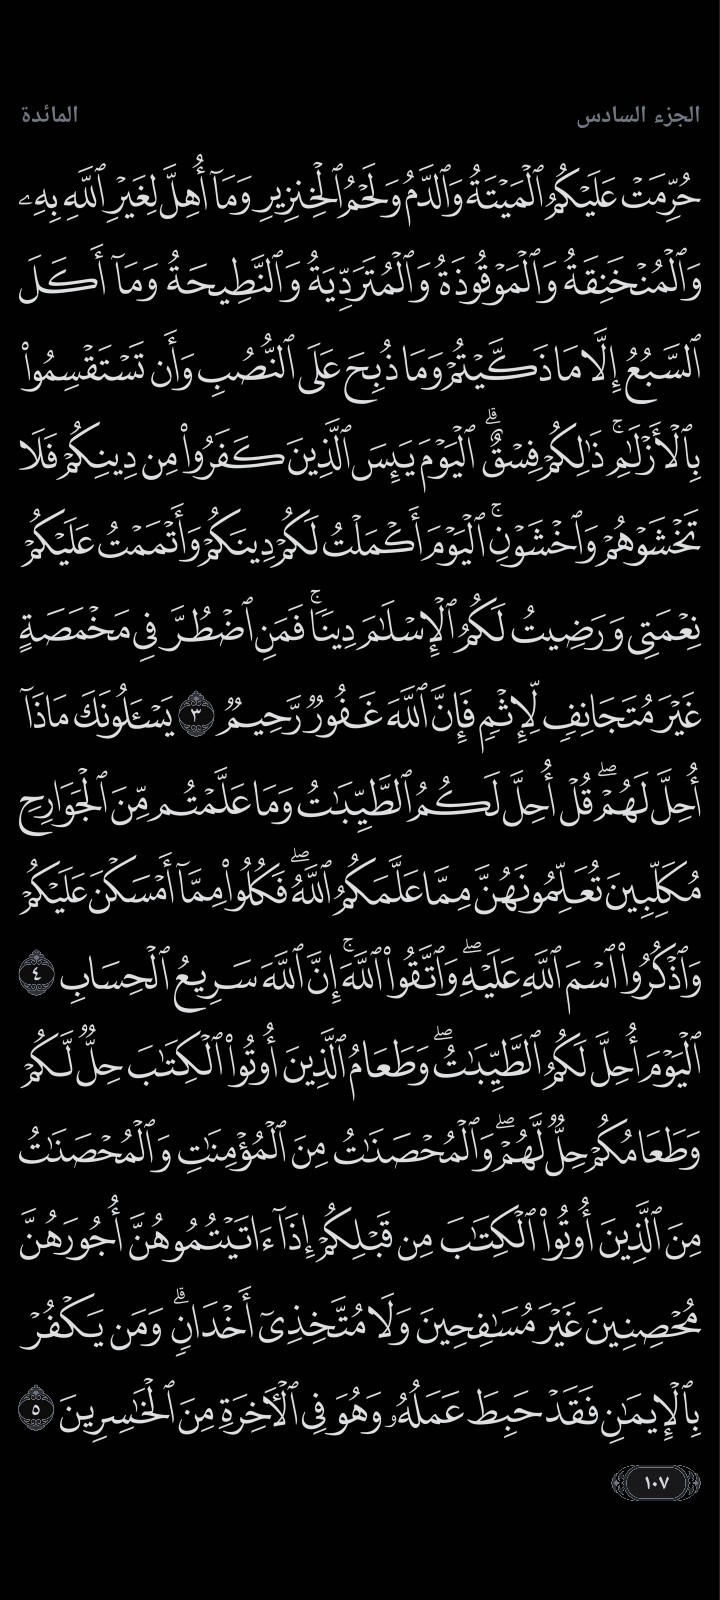 الجزء السادس
المائدة
حُرِّمَتْ عَلَيْكُمُ ٱلْمَيْتَةُ وَٱلدَّمُ وَلَحْمُ ٱلْخِنزِيرِ وَمَآ أُهِلَّ لِغَيْرِ ٱللَّهِ بِهِۦ
وَٱلْمُنْخَنِقَةُ وَٱلْمَوْقُوذَةُ وَٱلْمُتَرَدِّيَةُ وَٱلنَّطِيحَةُ وَمَآ أَكَلَ
ٱلسَّبُعُ إِلَّا مَا ذَكَّيْتُمْ وَمَا ذُبِحَ عَلَى ٱلنُّصُبِ وَأَن تَسْتَقْسِمُوا۟
بِٱلْأَزْلَـٰمِ ۚ ذَٰلِكُمْ فِسْقٌ ۗ ٱلْيَوْمَ يَئِسَ ٱلَّذِينَ كَفَرُوا۟ مِن دِينِكُمْ فَلَا
تَخْشَوْهُمْ وَٱخْشَوْنِ ۚ ٱلْيَوْمَ أَكْمَلْتُ لَكُمْ دِينَكُمْ وَأَتْمَمْتُ عَلَيْكُمْ
نِعْمَتِى وَرَضِيتُ لَكُمُ ٱلْإِسْلَـٰمَ دِينًا ۚ فَمَنِ ٱضْطُرَّ فِى مَخْمَصَةٍ
غَيْرَ مُتَجَانِفٍ لِّإِثْمٍ فَإِنَّ ٱللَّهَ غَفُورٌ رَّحِيمٌ ٣ يَسْـَٔلُونَكَ مَاذَآ
أُحِلَّ لَهُمْ ۖ قُلْ أُحِلَّ لَكُمُ ٱلطَّيِّبَـٰتُ وَمَا عَلَّمْتُم مِّنَ ٱلْجَوَارِحِ
مُكَلِّبِينَ تُعَلِّمُونَهُنَّ مِمَّا عَلَّمَكُمُ ٱللَّهُ ۖ فَكُلُوا۟ مِمَّآ أَمْسَكْنَ عَلَيْكُمْ
وَٱذْكُرُوا۟ ٱسْمَ ٱللَّهِ عَلَيْهِ ۖ وَٱتَّقُوا۟ ٱللَّهَ ۚ إِنَّ ٱللَّهَ سَرِيعُ ٱلْحِسَابِ ٤
ٱلْيَوْمَ أُحِلَّ لَكُمُ ٱلطَّيِّبَـٰتُ ۖ وَطَعَامُ ٱلَّذِينَ أُوتُوا۟ ٱلْكِتَـٰبَ حِلٌّ لَّكُمْ
وَطَعَامُكُمْ حِلٌّ لَّهُمْ ۖ وَٱلْمُحْصَنَـٰتُ مِنَ ٱلْمُؤْمِنَـٰتِ وَٱلْمُحْصَنَـٰتُ
مِنَ ٱلَّذِينَ أُوتُوا۟ ٱلْكِتَـٰبَ مِن قَبْلِكُمْ إِذَآ ءَاتَيْتُمُوهُنَّ أُجُورَهُنَّ
مُحْصِنِينَ غَيْرَ مُسَـٰفِحِينَ وَلَا مُتَّخِذِىٓ أَخْدَانٍ ۗ وَمَن يَكْفُرْ
بِٱلْإِيمَـٰنِ فَقَدْ حَبِطَ عَمَلُهُۥ وَهُوَ فِى ٱلْـَٔاخِرَةِ مِنَ ٱلْخَـٰسِرِينَ ٥
١٠٧